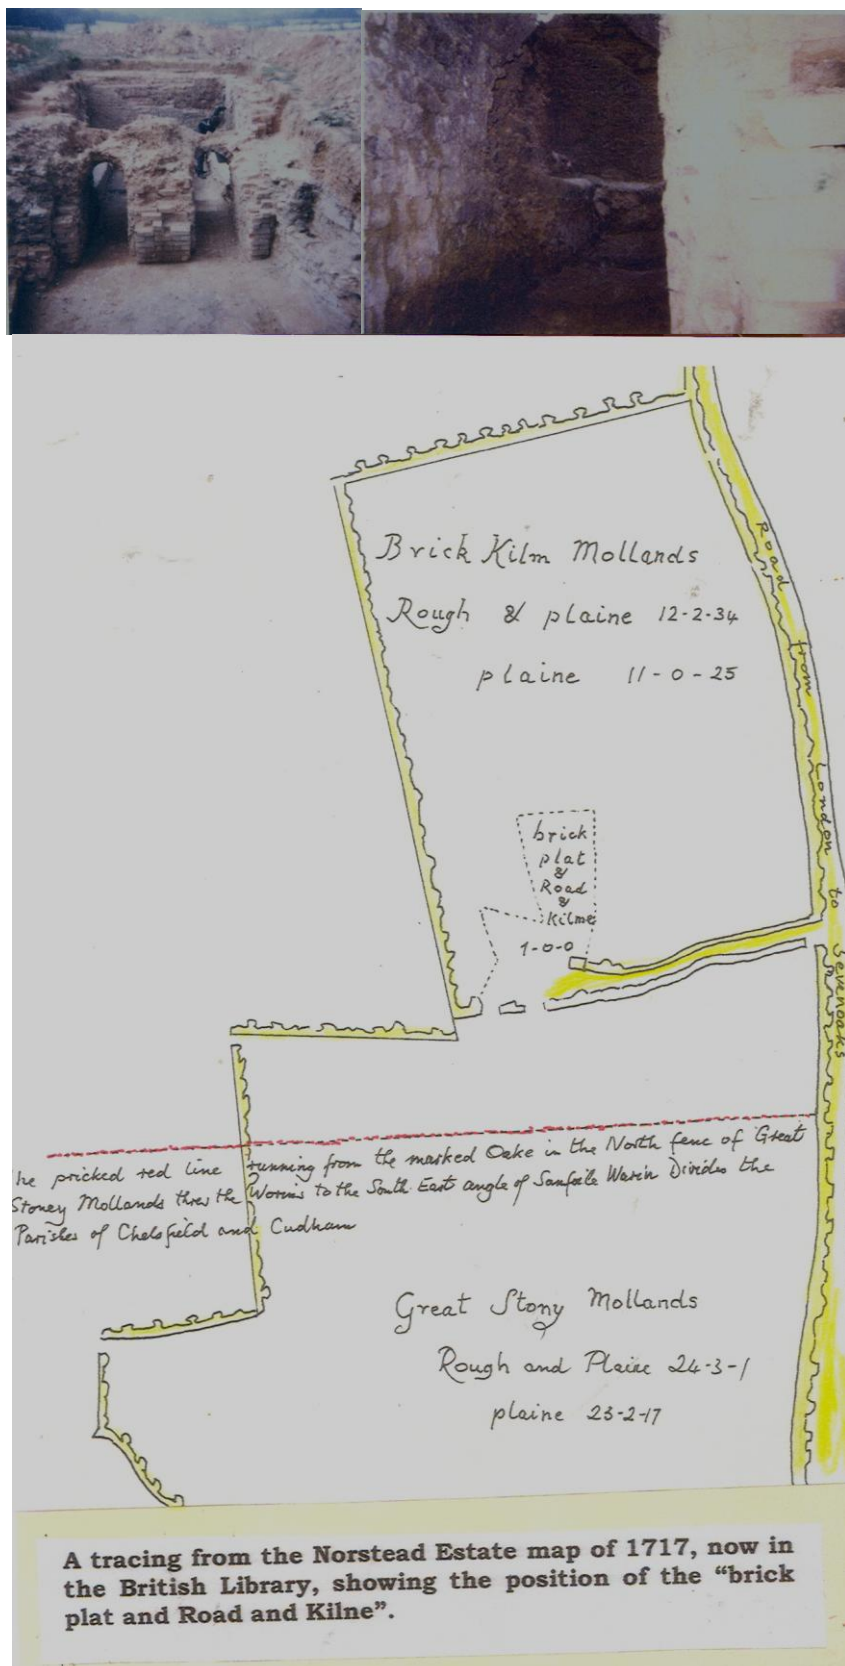 Brick Kilm Mollands
Rough & plaine 12-2-34
plaine 11-0-25
Road from London to Sevenoaks
brick
plat
&
Road
&
Kilme
1-0-0
he pricked red line running from the marked Oake in the North fenc of Great
Stoney Mollands threw the Worins to the South East angle of Warin Divides the
Parishes of Chelsfield and Cudham
Great Stony Mollands
Rough and Plaine 24-3-1
plaine 23-2-17
A tracing from the Norstead Estate map of 1717, now in
the British Library, showing the position of the “brick
plat and Road and Kilne”.